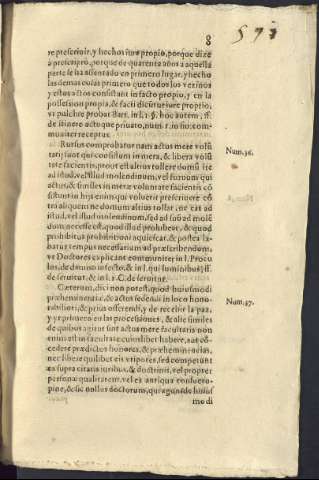 8
571
re prescriuir, y hechos suo propio, porque dize
a prescripto, porque de quarenta años a aquella
parte se ha assentado en primero lugar, y hecho
las demas cosas primero que todos los vezinos
y estos actos consistant in facto proprio, y en la
possession propia, & facit dicuntur re proprio,
vt pulchre probat Bart. in l. 1. §. hoc autem, ff.
de itinere actuque priuato, num. 1. in fin. com-
muniter receptus.
Rursus comprobatur nam actus meræ volũ
tatis sunt qui consistunt in mera, & libera volũ
tate facientis, prout est altius tollere domũ ire
ad istud, vel istud molendinum, vel furnum qui
actus, & similes in mera voluntate facientis cõ
sistunt in his enim qui volueris prescriuere cõ
tra aliquem ne domum altius tollat, ne eat ad
istud, vel illud molendinum, sed ad suũ ad molẽ
dum necesse est, quod illud prohibeat, & quod
prohibitus prohibitioni aquiescat, & postea la-
batur tempus necessarium ad præscribendum,
vt Doctores explicant communiter in l. Procu
lus, de damno infecto, & in l. qui luminibus, ff.
de seruitut, & in l. 1. C. de seruitut.
Cæterum, dici non potest, quod huiusmodi
præheminentiæ, & actus sedendi in loco hono-
rabiliori, & prius offerendi, y de recebir la paz,
y yr primero en las processiones, & sic similes
de quibus agitur sint actus meræ facultatis non
enim est in facultate cuiuslibet habere, aut cõ-
cedere prædictos honores, & præheminencias,
nec libere quilibet eis vti potest, sed competunt
ex supra citatis iuribus, & doctrinis, vel propter
personæ qualitatem, vel ex antiqua consueto-
pine, & sic nullus doctorum, qui agunt de huius
mo di
Num. 36.
Num. 37.